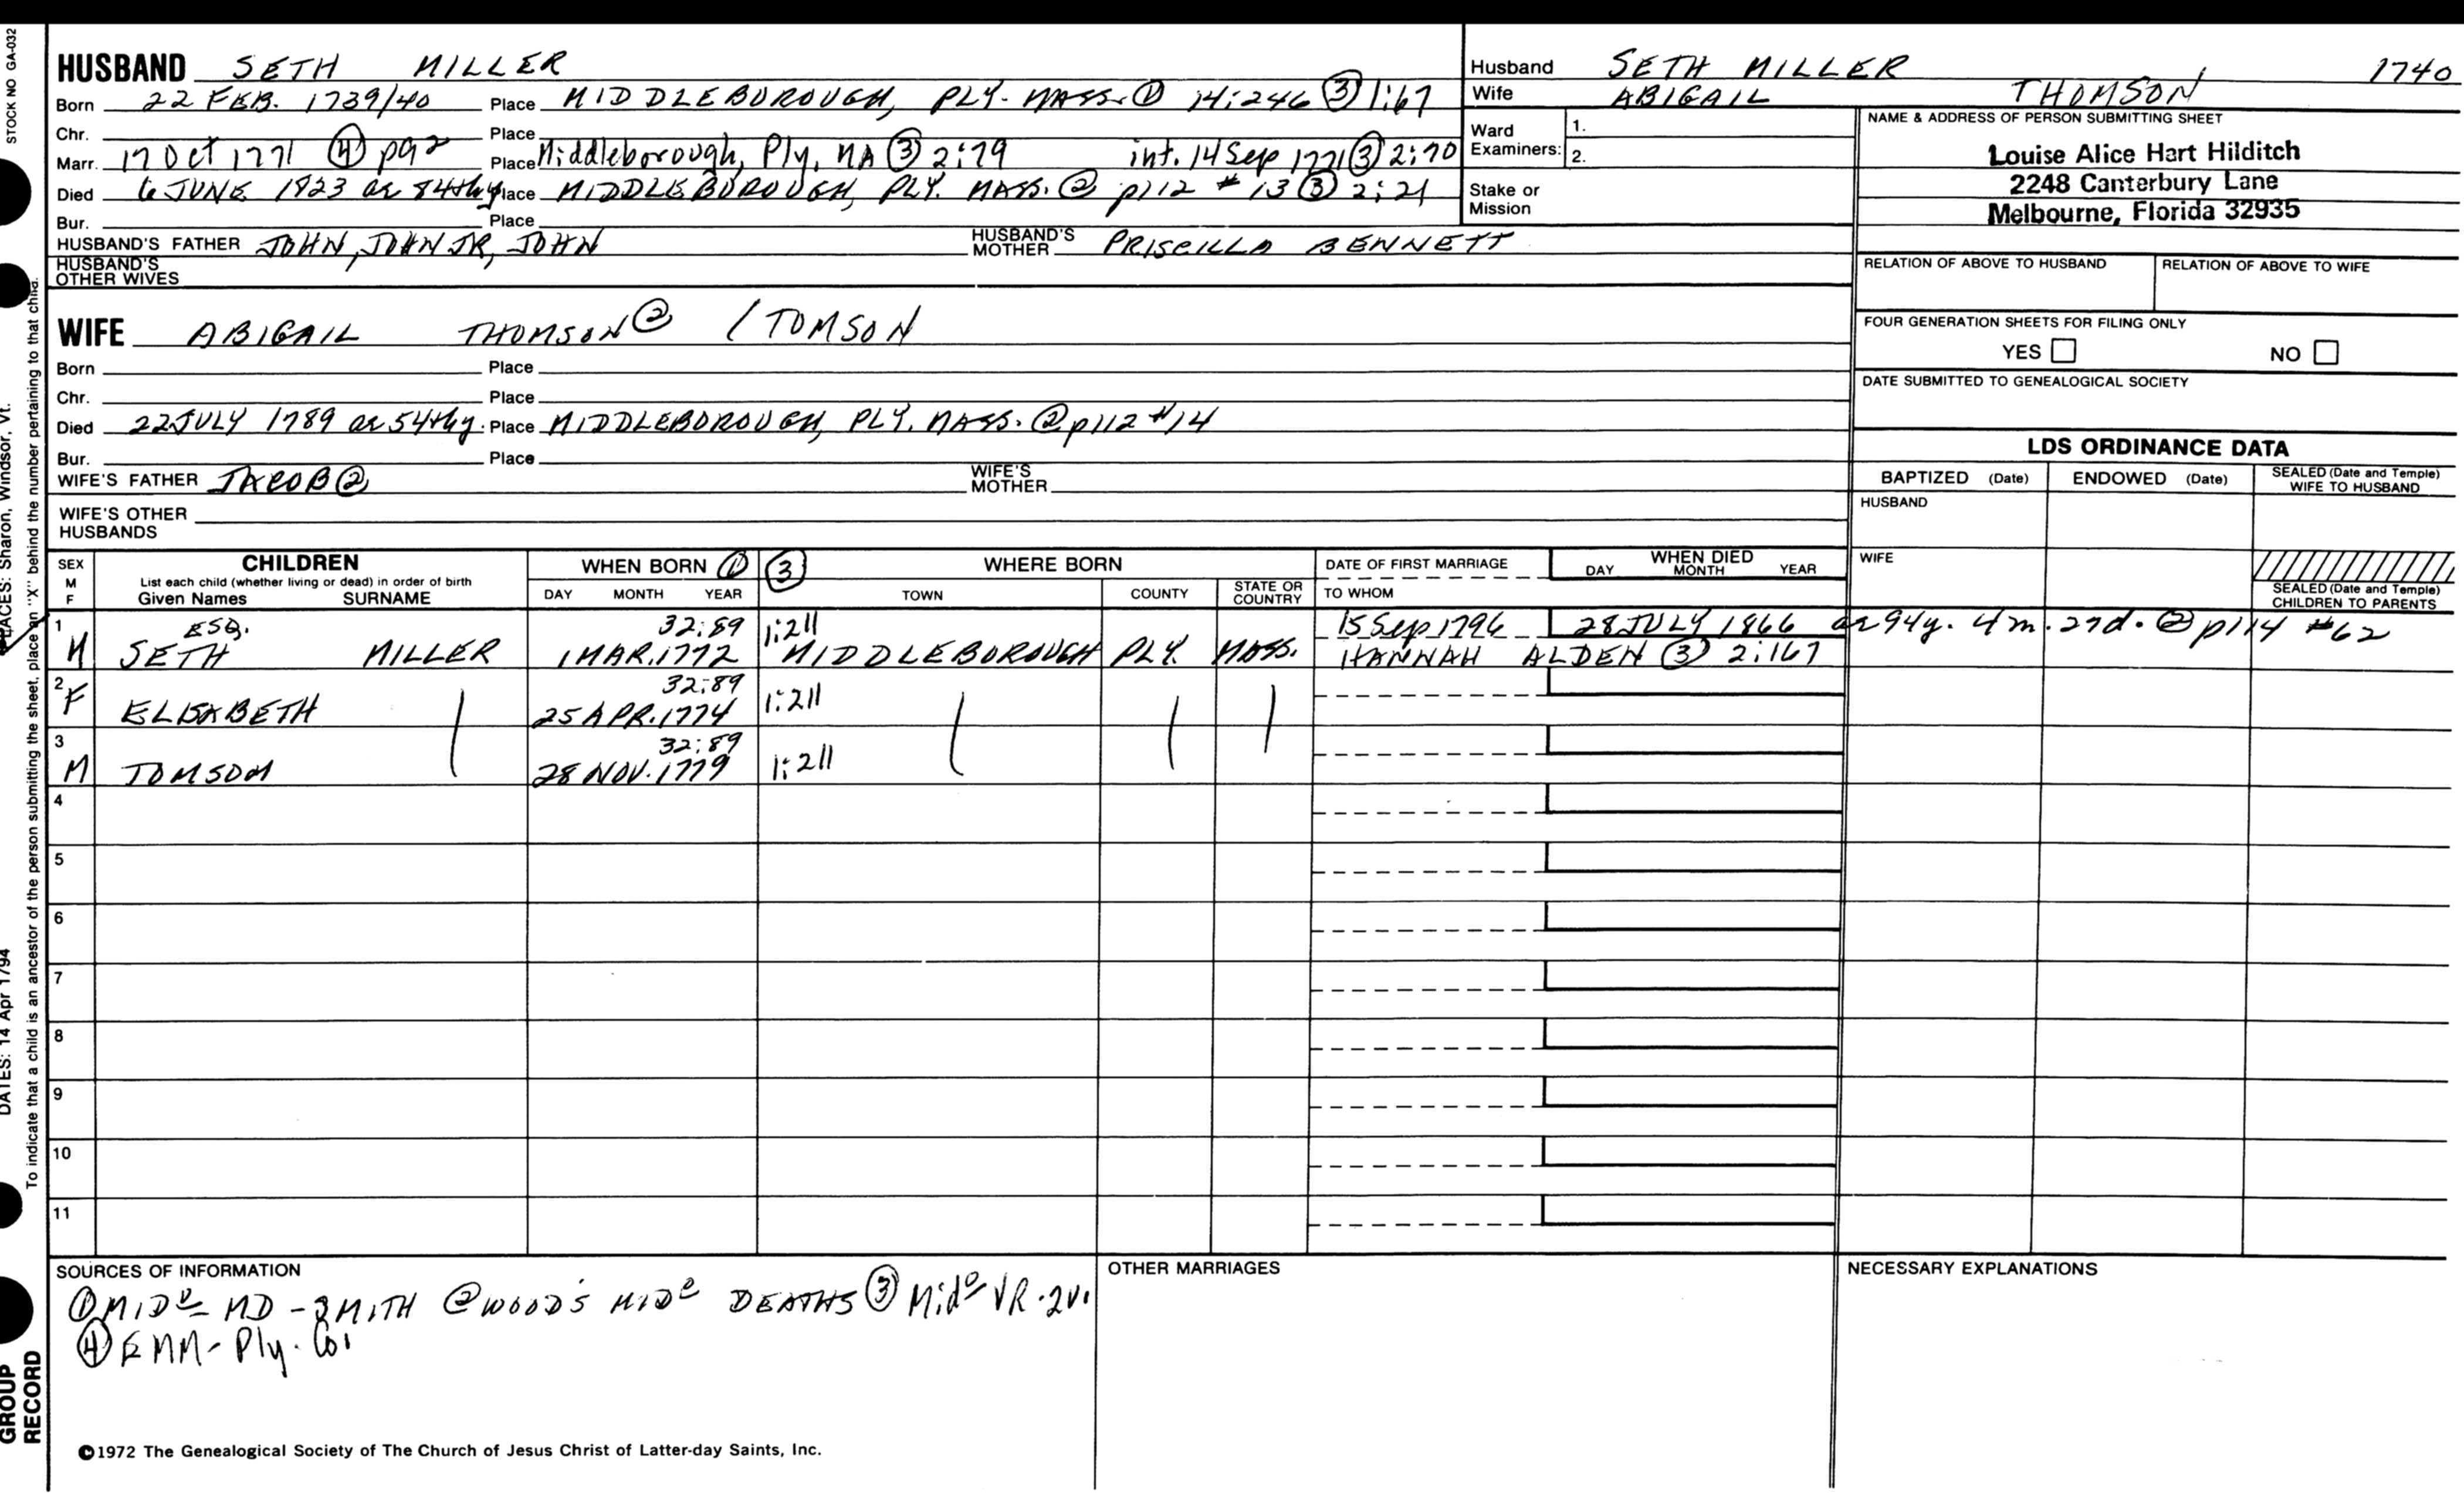 STOCK NO GA-032
HUSBAND SETH MILLER
Born 22 FEB. 1739/40 Place MIDDLEBOROUGH, PLY. MASS. ① 14:246 ③ 1:67
Chr. Place
Marr. 17 Oct 1771 ④ pg 2 Place Middleborough, Ply, MA ③ 2:79 int. 14 Sep 1771 ③ 2:70
Died 6 JUNE 1823 ae 84thy Place MIDDLEBOROUGH, PLY. MASS. ② p112 #13 ③ 2:21
Bur. Place
HUSBAND'S FATHER JOHN, JOHN JR, JOHN HUSBAND'S MOTHER PRISCILLA BENNETT
HUSBAND'S OTHER WIVES
Husband SETH MILLER 1740
Wife ABIGAIL THOMSON
Ward Examiners: 1.
2.
Stake or Mission
NAME & ADDRESS OF PERSON SUBMITTING SHEET
Louise Alice Hart Hilditch
2248 Canterbury Lane
Melbourne, Florida 32935
RELATION OF ABOVE TO HUSBAND RELATION OF ABOVE TO WIFE
FOUR GENERATION SHEETS FOR FILING ONLY
YES NO
DATE SUBMITTED TO GENEALOGICAL SOCIETY
WIFE ABIGAIL THOMSON ② / TOMSON
Born Place
Chr. Place
Died 22 JULY 1789 ae 54thy. Place MIDDLEBOROUGH, PLY. MASS. ② p112 #14
Bur. Place
WIFE'S FATHER JACOB ② WIFE'S MOTHER
WIFE'S OTHER HUSBANDS
LDS ORDINANCE DATA
BAPTIZED (Date) ENDOWED (Date) SEALED (Date and Temple) WIFE TO HUSBAND
HUSBAND
WIFE
SEALED (Date and Temple) CHILDREN TO PARENTS
SEX M F
CHILDREN
List each child (whether living or dead) in order of birth
Given Names SURNAME
WHEN BORN ① ③ WHERE BORN
DAY MONTH YEAR TOWN COUNTY STATE OR COUNTRY
DATE OF FIRST MARRIAGE
TO WHOM
WHEN DIED
DAY MONTH YEAR
1 ESQ. 32:89 1:211 15 Sep 1796 28 JULY 1866 ae 94y. 4m. 27d. ② p114 #62
M SETH MILLER 1 MAR. 1772 MIDDLEBOROUGH PLY. MASS. HANNAH ALDEN ③ 2:167
2 32:89
F ELISABETH 25 APR. 1774 1:211
3 32:89
M TOMSON 28 NOV. 1779 1:211
4
5
6
7
8
9
10
11
SOURCES OF INFORMATION
① MIDº MD - SMITH ② WOOD'S MIDº DEATHS ③ Midº VR-2v.
④ EMM- Ply. Co.
OTHER MARRIAGES
NECESSARY EXPLANATIONS
©1972 The Genealogical Society of The Church of Jesus Christ of Latter-day Saints, Inc.
To indicate that a child is an ancestor of the person submitting the sheet, place an "X" behind the number pertaining to that child.
PLACES: Sharon, Windsor, Vt.
DATES: 14 Apr 1794
GROUP
RECORD